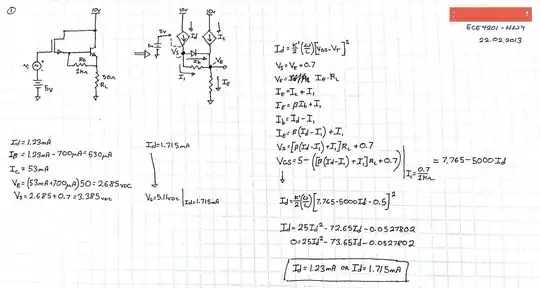 ①
ECE4201-HW4
22.02.2013
10v
Rb
1kΩ
50Ω
RL
5v
10v
10v
5v
Id
Ic
VS
Ib
VE
Rb
I1
IE
RL
Id = K'/2 (W/L) [VGS - VT]^2
VS = VE + 0.7
VE = IE · RL
IE = Ic + I1
IE = βIb + I1
Ib = Id - I1
IE = β(Id - I1) + I1
VS = [β(Id - I1) + I1] RL + 0.7
VGS = 5 - ([β(Id - I1) + I1] RL + 0.7) | I1 = 0.7/1kΩ = 7.765 - 5000 Id
Id = K'/2 (W/L) [7.765 - 5000Id - 0.5]^2
Id = 25Id^2 - 72.65Id - 0.0527802
0 = 25Id^2 - 73.65Id - 0.0527802
Id = 1.23mA or Id = 1.715mA
Id = 1.23mA
IB = 1.23mA - 700μA = 530μA
Ic = 53mA
VE = (53mA + 700μA) 50 = 2.685VDC
VS = 2.685 + 0.7 = 3.385VDC
Id = 1.715mA
VS = 5.11VDC | Id = 1.715mA